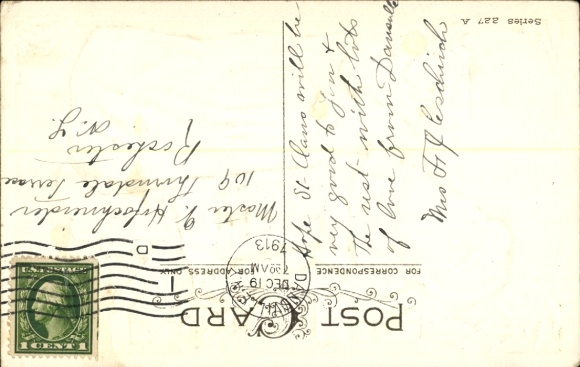 POST CARD
FOR CORRESPONDENCE
FOR ADDRESS ONLY
DANSVILLE
DEC 19
7 30 AM
1913
N.Y.
D
U.S. POSTAGE
1 CENT 1
Hope St. Claus will be
very good to you &
the rest - with lots
of love from Dansville
Mrs F J
Master V.
109 Thorndale Terrace
Rochester
N.Y.
Series 227 A